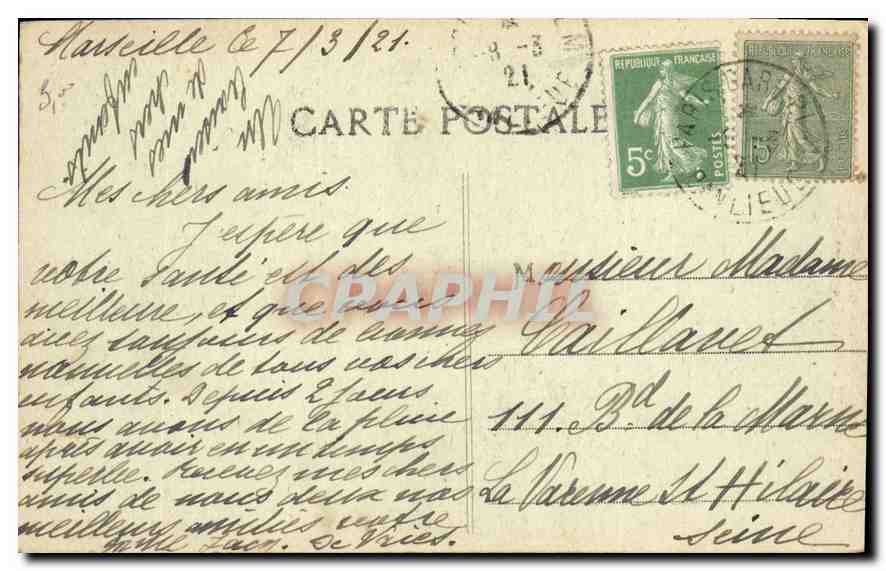 Marseille le 7/3/21.
3,-
Un
baiser
de mes
chers
enfants
CARTE POSTALE
8 -3
21
REPUBLIQUE FRANÇAISE
5c
POSTES
REPUBLIQUE FRANÇAISE
15
POSTES
PARIS GARE
BANLIEUE
Mes chers amis.
J'espère que
votre santé est des
meilleure, et que vous
avez toujours de bonnes
nouvelles de tous vos chers
enfants. Depuis 2 jours
nous avons de la pluie
après avoir eu un temps
superbe. Recevez mes chers
amis de nous deux nos
meilleurs amitiés votre
Jacq. De Vries.
Monsieur Madame
Caillavet
111. Bd de la Marne
La Varenne St Hilaire
Seine
CRAPHIL